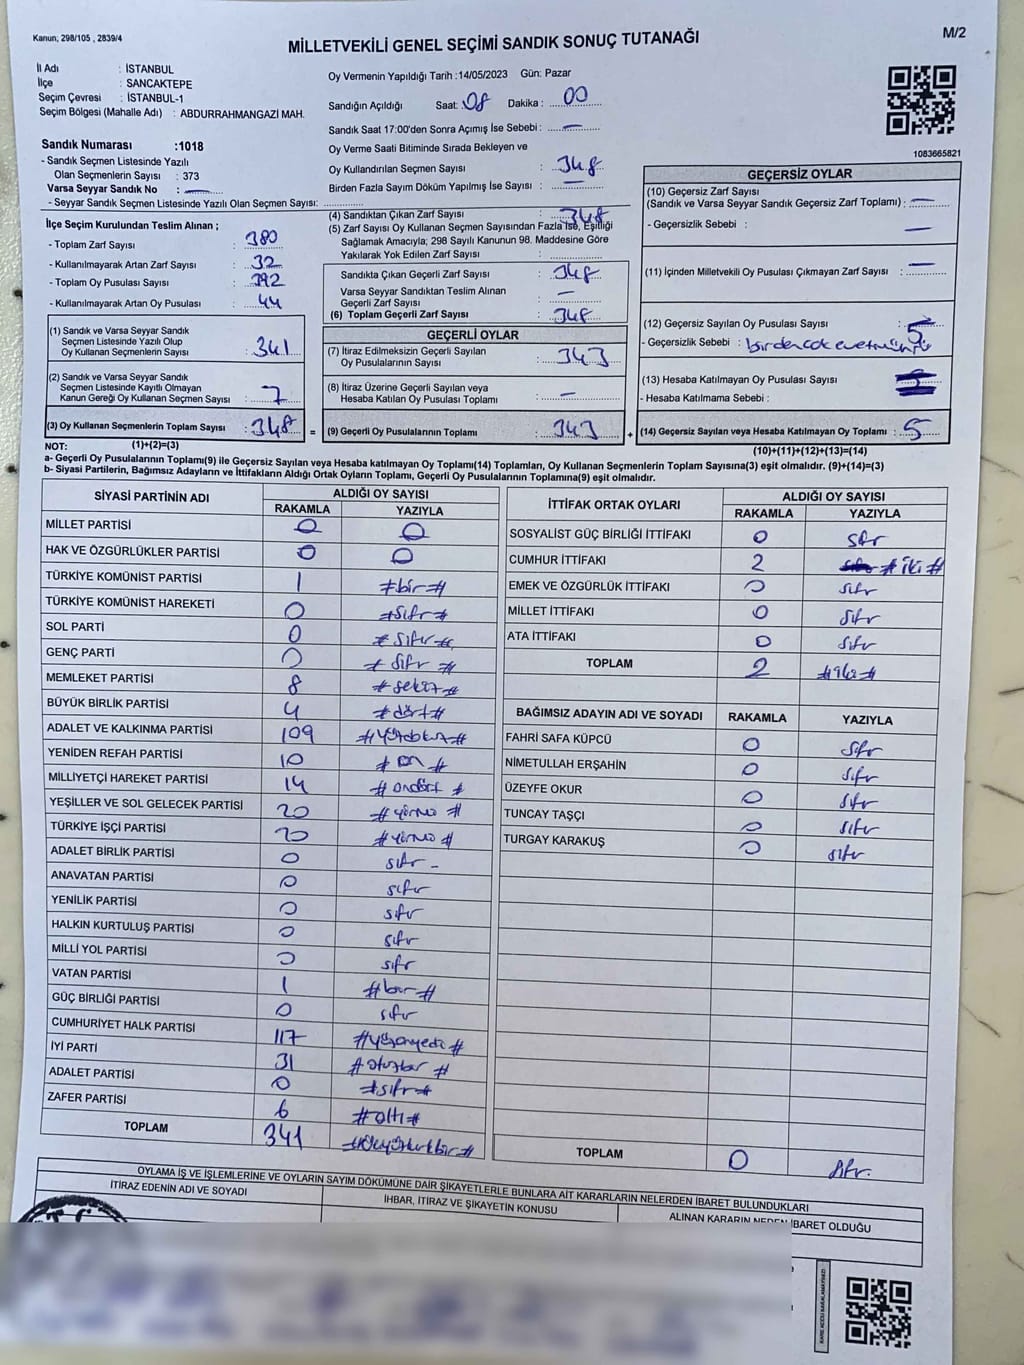 Kanun; 298/105 , 2839/4
M/2
MİLLETVEKİLİ GENEL SEÇİMİ SANDIK SONUÇ TUTANAĞI
İl Adı : İSTANBUL
İlçe : SANCAKTEPE
Seçim Çevresi : İSTANBUL-1
Seçim Bölgesi (Mahalle Adı) : ABDURRAHMANGAZİ MAH.
Oy Vermenin Yapıldığı Tarih :14/05/2023 Gün: Pazar
Sandığın Açıldığı Saat: 08 Dakika : 00
Sandık Saat 17:00'den Sonra Açımış İse Sebebi : —
Oy Verme Saati Bitiminde Sırada Bekleyen ve
Oy Kullandırılan Seçmen Sayısı : 348
Birden Fazla Sayım Döküm Yapılmış İse Sayısı : —
Sandık Numarası :1018
- Sandık Seçmen Listesinde Yazılı
Olan Seçmenlerin Sayısı : 373
Varsa Seyyar Sandık No : —
- Seyyar Sandık Seçmen Listesinde Yazılı Olan Seçmen Sayısı:
1083665821
İlçe Seçim Kurulundan Teslim Alınan ;
- Toplam Zarf Sayısı : 380
- Kullanılmayarak Artan Zarf Sayısı : 32
- Toplam Oy Pusulası Sayısı : 392
- Kullanılmayarak Artan Oy Pusulası : 44
(1) Sandık ve Varsa Seyyar Sandık
Seçmen Listesinde Yazılı Olup
Oy Kullanan Seçmenlerin Sayısı : 341
(2) Sandık ve Varsa Seyyar Sandık
Seçmen Listesinde Kayıtlı Olmayan
Kanun Gereği Oy Kullanan Seçmen Sayısı : 7
(3) Oy Kullanan Seçmenlerin Toplam Sayısı : 348
(4) Sandıktan Çıkan Zarf Sayısı : 348
(5) Zarf Sayısı Oy Kullanan Seçmen Sayısından Fazla İse, Eşitliği
Sağlamak Amacıyla; 298 Sayılı Kanunun 98. Maddesine Göre
Yakılarak Yok Edilen Zarf Sayısı :
Sandıkta Çıkan Geçerli Zarf Sayısı : 348
Varsa Seyyar Sandıktan Teslim Alınan
Geçerli Zarf Sayısı : —
(6) Toplam Geçerli Zarf Sayısı : 348
GEÇERLİ OYLAR
(7) İtiraz Edilmeksizin Geçerli Sayılan
Oy Pusulalarının Sayısı : 343
(8) İtiraz Üzerine Geçerli Sayılan veya
Hesaba Katılan Oy Pusulası Toplamı : —
= (9) Geçerli Oy Pusulalarının Toplamı : 343
GEÇERSİZ OYLAR
(10) Geçersiz Zarf Sayısı
(Sandık ve Varsa Seyyar Sandık Geçersiz Zarf Toplamı) : —
- Geçersizlik Sebebi : —
(11) İçinden Milletvekili Oy Pusulası Çıkmayan Zarf Sayısı : —
(12) Geçersiz Sayılan Oy Pusulası Sayısı : 5
- Geçersizlik Sebebi : birden cok evet mührü
(13) Hesaba Katılmayan Oy Pusulası Sayısı :
- Hesaba Katılmama Sebebi :
+ (14) Geçersiz Sayılan veya Hesaba Katılmayan Oy Toplamı : 5
NOT: (1)+(2)=(3)
(10)+(11)+(12)+(13)=(14)
a- Geçerli Oy Pusulalarının Toplamı(9) ile Geçersiz Sayılan veya Hesaba katılmayan Oy Toplamı(14) Toplamları, Oy Kullanan Seçmenlerin Toplam Sayısına(3) eşit olmalıdır. (9)+(14)=(3)
b- Siyasi Partilerin, Bağımsız Adayların ve İttifakların Aldığı Ortak Oyların Toplamı, Geçerli Oy Pusulalarının Toplamına(9) eşit olmalıdır.
SİYASİ PARTİNİN ADI ALDIĞI OY SAYISI
RAKAMLA YAZIYLA
MİLLET PARTİSİ 0 0
HAK VE ÖZGÜRLÜKLER PARTİSİ 0 0
TÜRKİYE KOMÜNİST PARTİSİ 1 #bir#
TÜRKİYE KOMÜNİST HAREKETİ 0 #sıfır#
SOL PARTİ 0 #sıfır#
GENÇ PARTİ 0 #sıfır#
MEMLEKET PARTİSİ 8 #sekiz#
BÜYÜK BİRLİK PARTİSİ 4 #dört#
ADALET VE KALKINMA PARTİSİ 109 #yüzdokuz#
YENİDEN REFAH PARTİSİ 10 #on#
MİLLİYETÇİ HAREKET PARTİSİ 14 #ondört#
YEŞİLLER VE SOL GELECEK PARTİSİ 20 #yirmi#
TÜRKİYE İŞÇİ PARTİSİ 20 #yirmi#
ADALET BİRLİK PARTİSİ 0 sıfır
ANAVATAN PARTİSİ 0 sıfır
YENİLİK PARTİSİ 0 sıfır
HALKIN KURTULUŞ PARTİSİ 0 sıfır
MİLLİ YOL PARTİSİ 0 sıfır
VATAN PARTİSİ 1 #bir#
GÜÇ BİRLİĞİ PARTİSİ 0 sıfır
CUMHURİYET HALK PARTİSİ 117 #yüzonyedi#
İYİ PARTİ 31 #otuzbir#
ADALET PARTİSİ 0 #sıfır#
ZAFER PARTİSİ 6 #altı#
TOPLAM 341 #üçyüzkırkbir#
İTTİFAK ORTAK OYLARI ALDIĞI OY SAYISI
RAKAMLA YAZIYLA
SOSYALİST GÜÇ BİRLİĞİ İTTİFAKI 0 sıfır
CUMHUR İTTİFAKI 2 #iki#
EMEK VE ÖZGÜRLÜK İTTİFAKI 0 sıfır
MİLLET İTTİFAKI 0 sıfır
ATA İTTİFAKI 0 sıfır
TOPLAM 2 #iki#
BAĞIMSIZ ADAYIN ADI VE SOYADI RAKAMLA YAZIYLA
FAHRİ SAFA KÜPCÜ 0 sıfır
NİMETULLAH ERŞAHİN 0 sıfır
ÜZEYFE OKUR 0 sıfır
TUNCAY TAŞÇI 0 sıfır
TURGAY KARAKUŞ 0 sıfır
TOPLAM 0 sıfır.
OYLAMA İŞ VE İŞLEMLERİNE VE OYLARIN SAYIM DÖKÜMÜNE DAİR ŞİKAYETLERLE BUNLARA AİT KARARLARIN NELERDEN İBARET BULUNDUKLARI
İTİRAZ EDENİN ADI VE SOYADI
İHBAR, İTİRAZ VE ŞİKAYETİN KONUSU
ALINAN KARARIN NEDEN İBARET OLDUĞU